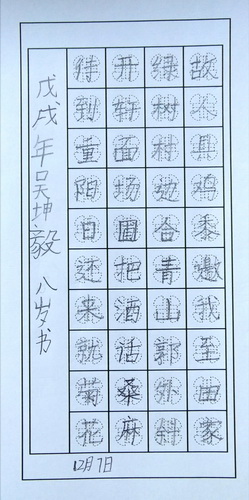 故人具鸡黍邀我至田家
绿树村边合青山郭外斜
开轩面场圃把酒话桑麻
待到重阳日还来就菊花
戊戌年吴坤毅 八岁书
12月7日